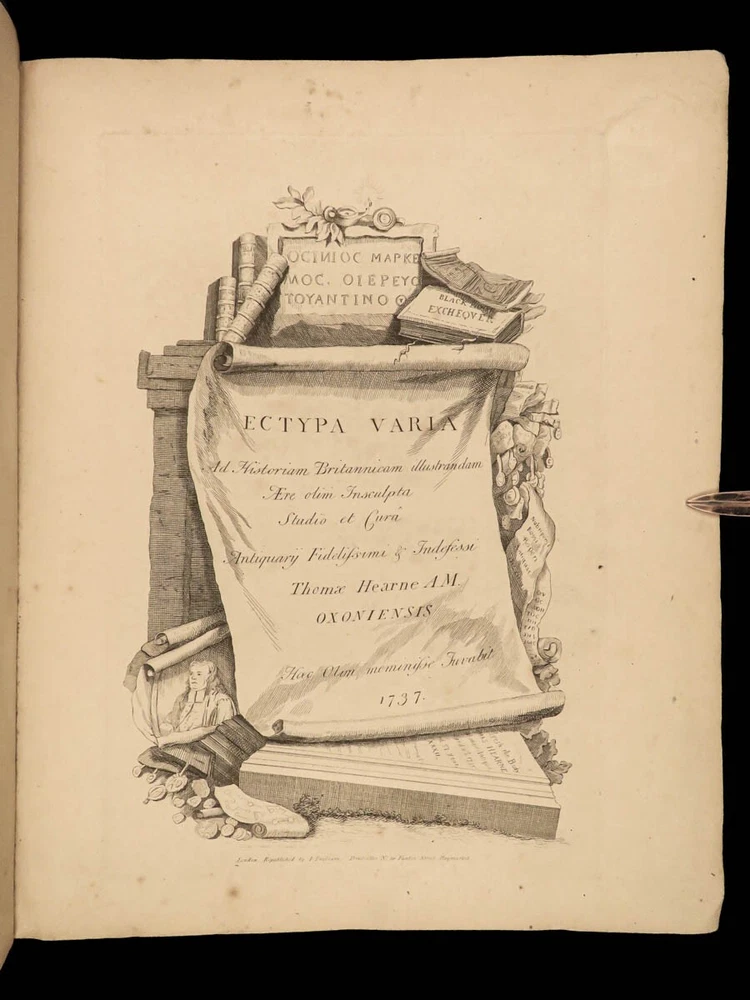 ΟϹΙΝΙΟϹ ΜΑΡΚΕ
ΜΟϹ. ΟΙΕΡΕΥϹ
ΤΟΥΑΝΤΙΝΟ
BLACK BOOK
EXCHEQUER
ECTYPA VARIA
Ad Historiam Britannicam illustrandam
Ære olim Insculpta
Studio et Curâ
Antiquarij Fidelissimi & Indefessi
Thomæ Hearne A M.
OXONIENSIS
Hæc Olim meminisse Juvabit
1737.
HEARNE
London Republished by